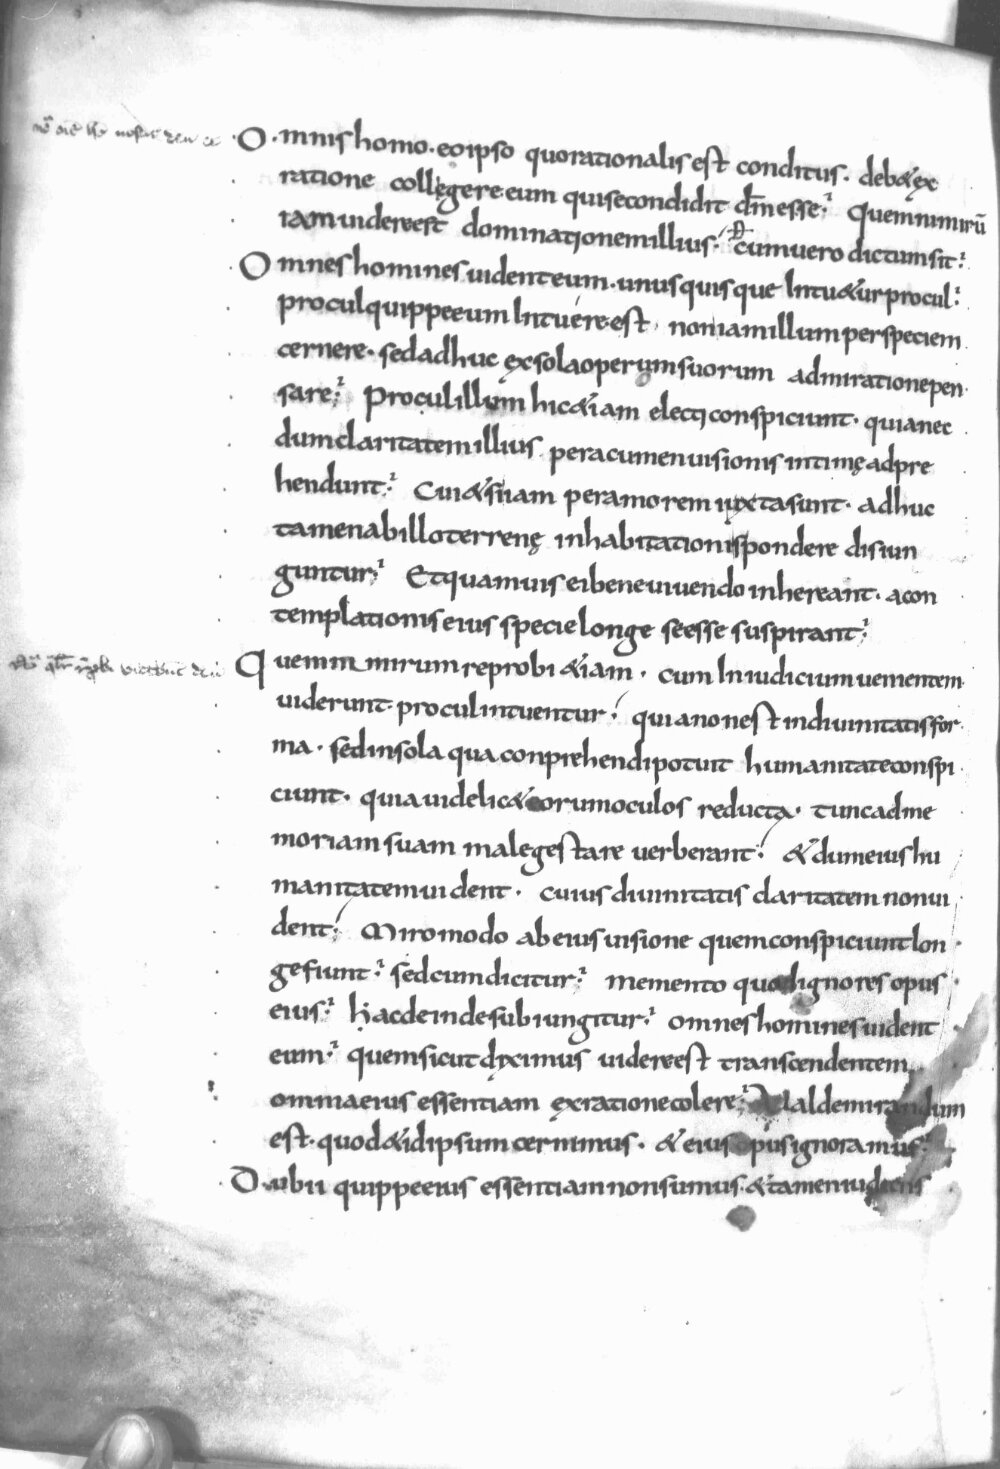 O·mnis homo· eo ipso quo rationalis est conditus· deb& ex
ratione collegere eum qui se condidit dm̄ esse; Quem nimirū
iam videre est dominationem illius; Cum vero dictum sit;
Omnes homines vident eum· unusquisque intu&ur procul;
procul quippe eum intuere est, non iam illum per speciem
cernere· sed adhuc ex sola operum suorum admiratione pen
sare; Procul illum hic &iam electi conspiciunt· quia nec
dum claritatem illius per acumen visionis intimę adpre
hendunt; Cui &si iam per amorem iuxta sunt· adhuc
tamen ab illo terrenę inhabitationis pondere disiun
guntur; Et quamvis ei bene vivendo inhereant· a con
templationis eius specie longe se esse suspirant;
Quem nimirum reprobi &iam· cum in iudicium vementem
viderunt· procul intuentur; quia non est in divinitatis for
ma· sed in sola qua conprehendi potuit humanitate conspi
ciunt· quia videlic& eorum oculos reducta· tunc ad me
moriam suam male gesta re verberant; & dum eius hu
manitatem vident· cuius divinitatis claritatem non vi
dent; Miro modo ab eius visione quem conspiciunt lon
ge fiunt; sed cum dicitur; memento quod ignores opus
eius; hac deinde subiungitur; omnes homines vident
eum; quem sicut diximus videre est transcendentem
omnia eius essentiam ex ratione colere; Valde mirandum
est· quod &id ipsum cernimus· & eius opus ignoramus;
Dubii quippe eius essentiam non sumus· & tamen iudiciis